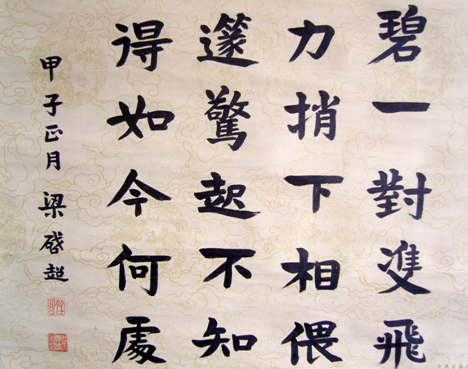 碧一對隻飛
力捎下相偎
邃驚起不知
得如今何處
甲子正月 梁啓超